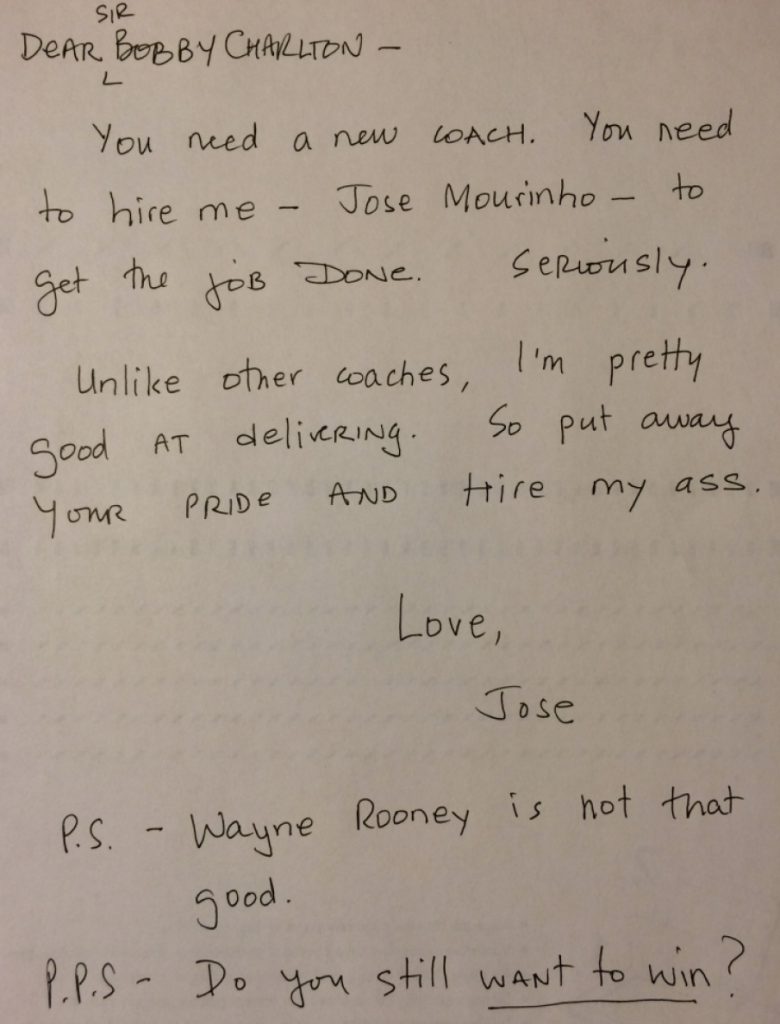 SIR
DEAR BOBBY CHARLTON -
You need a new COACH. You need
to hire me - Jose Mourinho - to
get the JOB DONE. SERIOUSLY.
Unlike other coaches, I'm pretty
good AT deliveRING. So put away
YOUR PRIDE AND Hire my ass.
Love,
Jose
P.S. - Wayne Rooney is not that
good.
P.P.S - Do you still WANT to win?